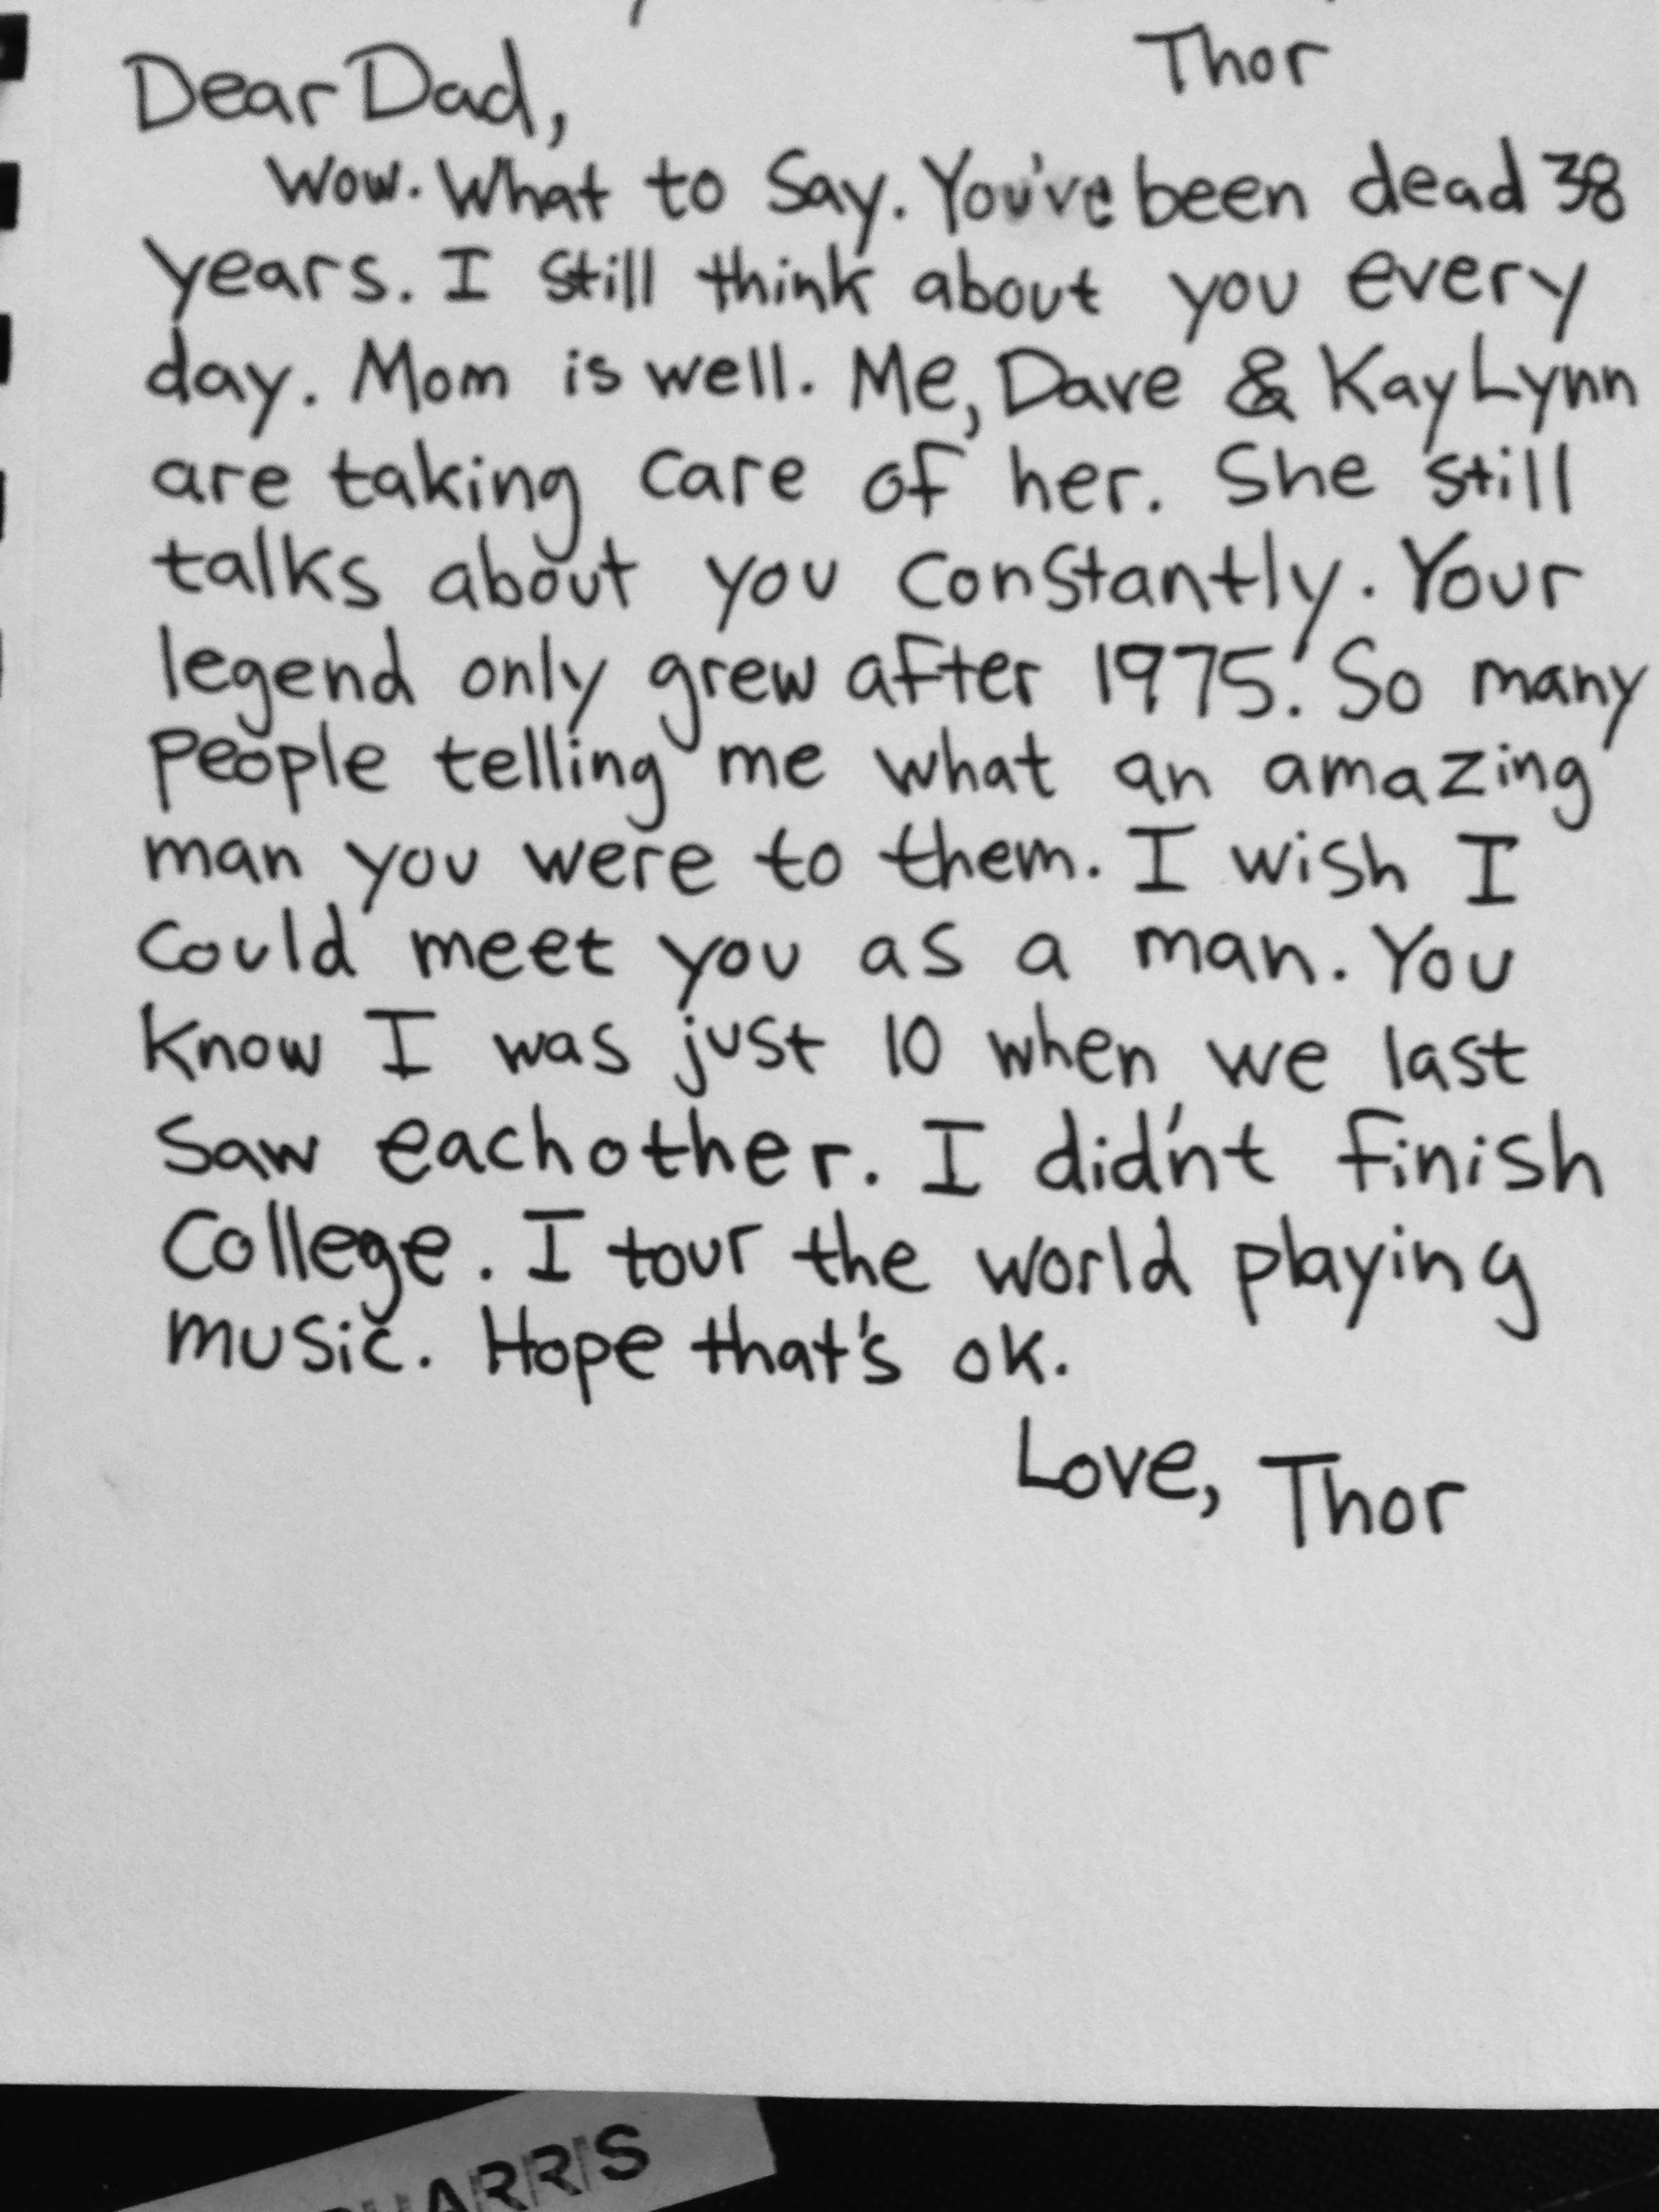 Thor
Dear Dad,
Wow. What to Say. You've been dead 38
years. I still think about you every
day. Mom is well. Me, Dave & KayLynn
are taking care of her. She still
talks about you constantly. Your
legend only grew after 1975. So many
people telling me what an amazing
man you were to them. I wish I
could meet you as a man. You
know I was just 10 when we last
saw eachother. I did'nt finish
College. I tour the world playing
music. Hope that's ok.
Love, Thor
HARRIS